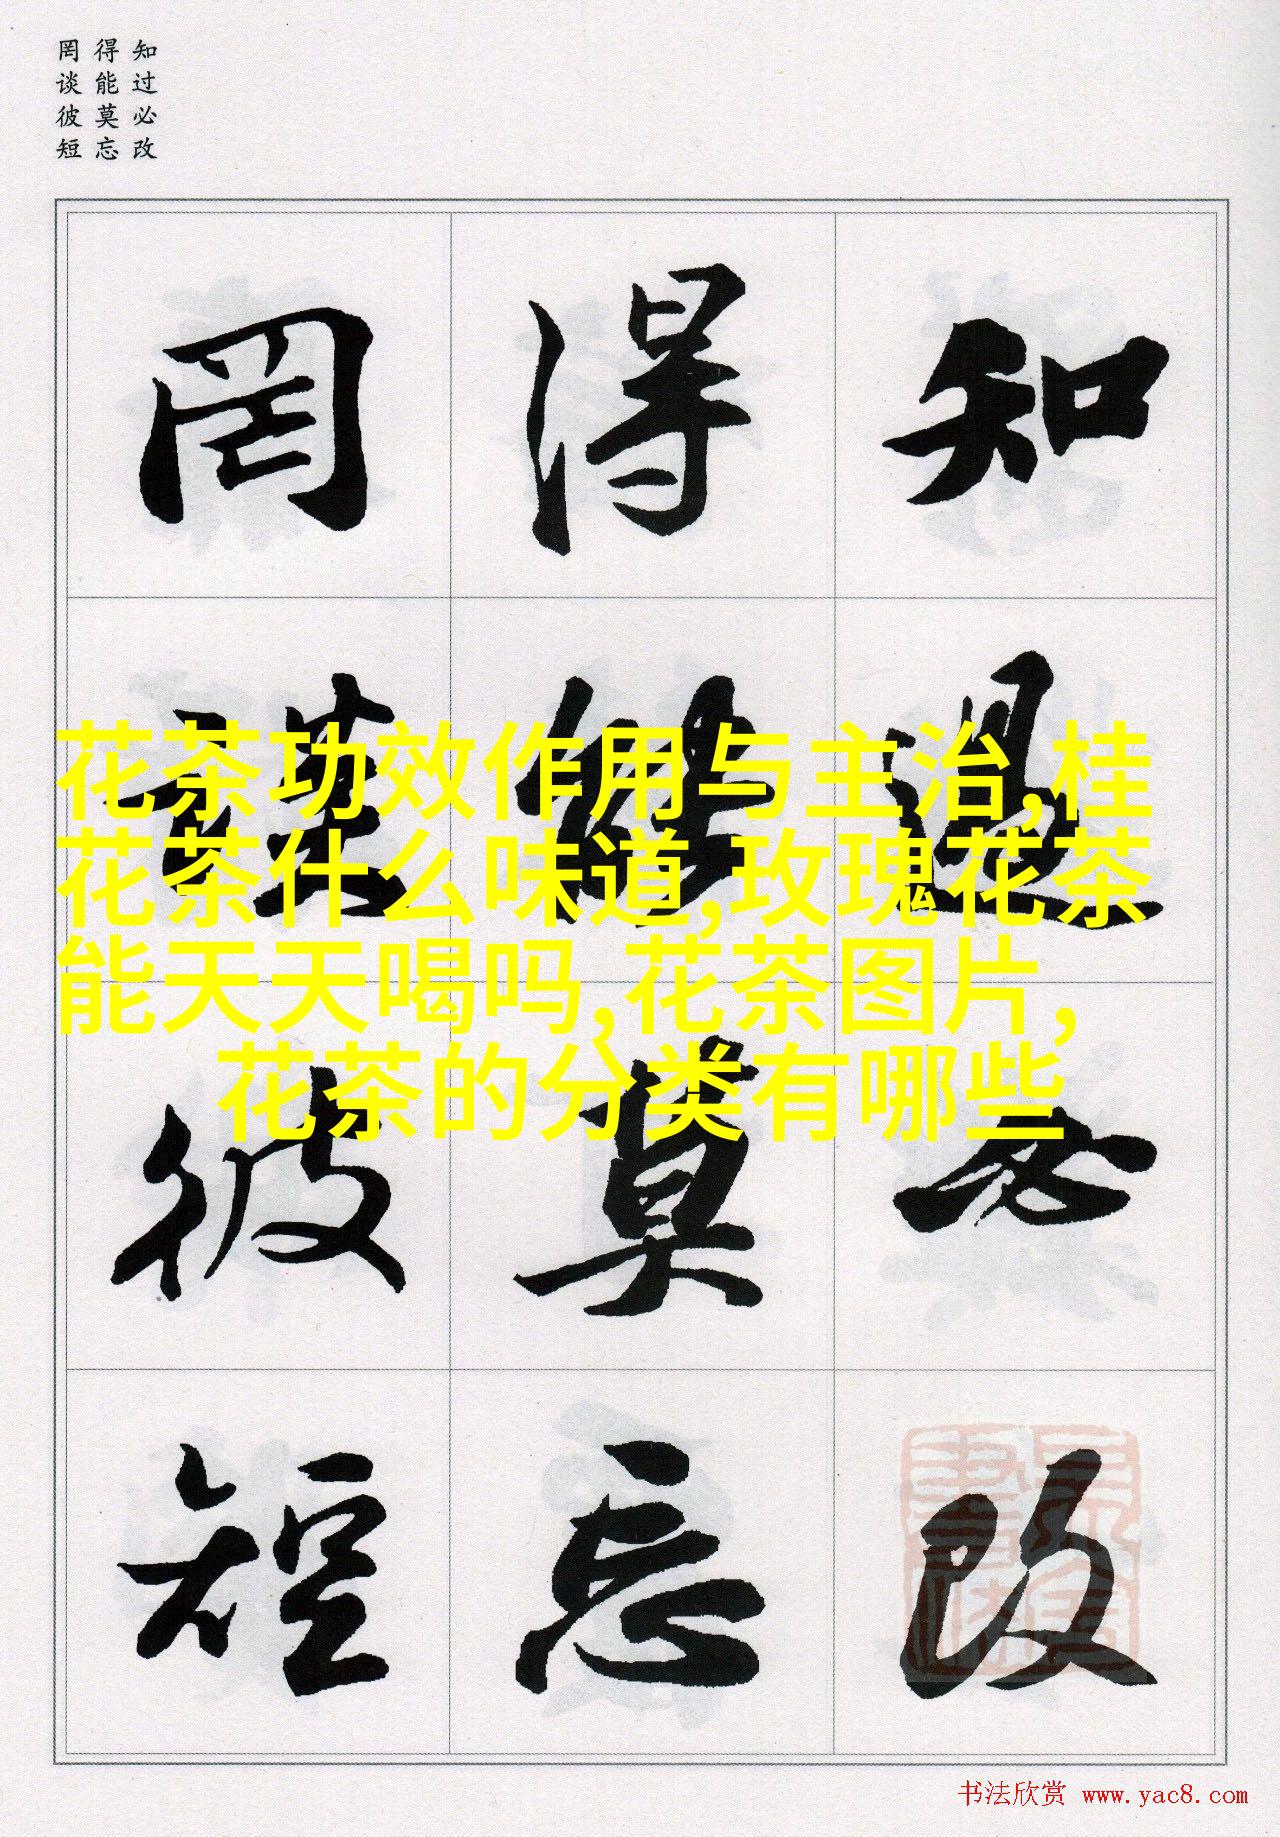 知过必改
得能莫忘
罔谈彼短
知過必改
得能莫忘
罔談彼短
花茶功效作用与主治,桂
花茶什么味道,玫瑰花茶
能天天喝吗,花茶图片,
花茶的分类有哪些
书法欣赏 www.yac8.com